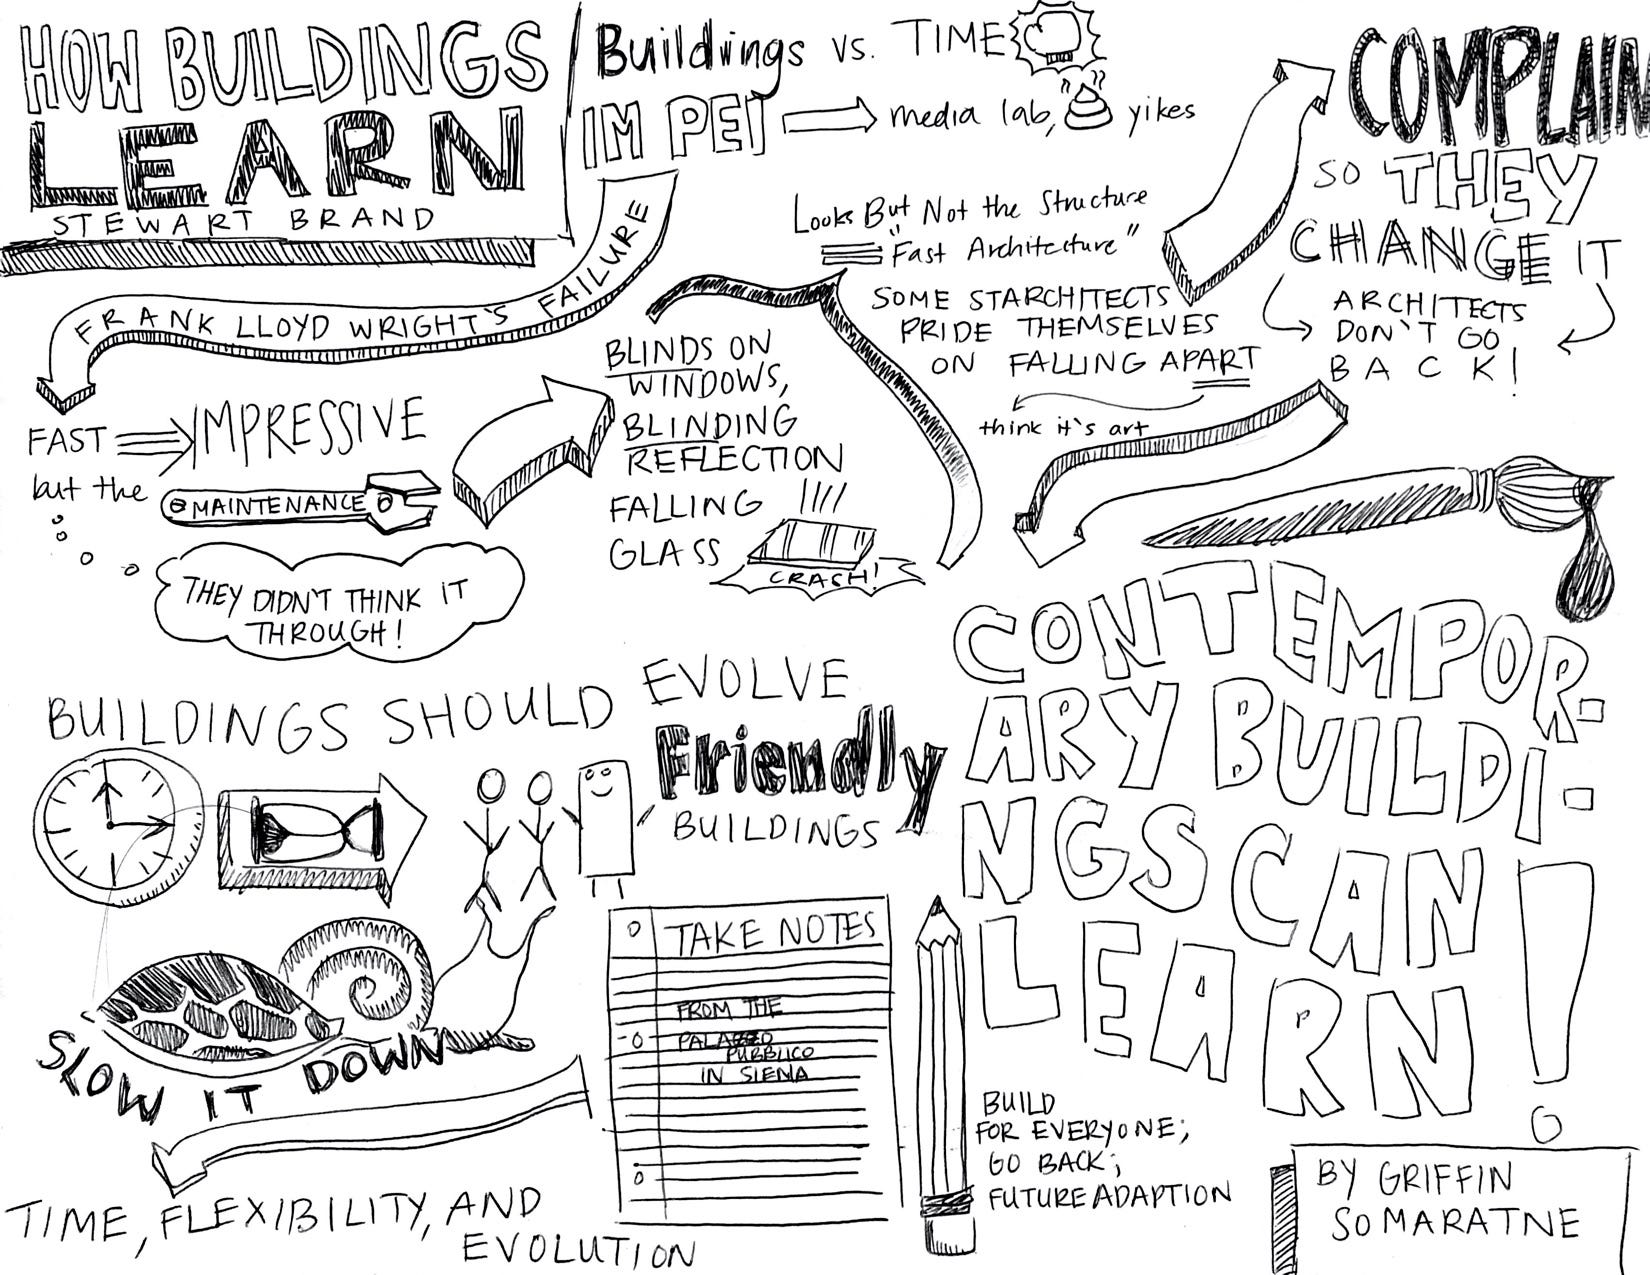 HOW BUILDINGS
LEARN
STEWART BRAND
Buildings vs. TIME
IM PEI
media lab, yikes
FRANK LLOYD WRIGHT'S FAILURE
FAST IMPRESSIVE
but the
MAINTENANCE
THEY DIDN'T THINK IT
THROUGH!
BLINDS ON
WINDOWS,
BLINDING
REFLECTION
FALLING
GLASS
CRASH!
Looks But Not the Structure
"Fast Architecture"
SOME STARCHITECTS
PRIDE THEMSELVES
ON FALLING APART
think it's art
COMPLAIN
SO THEY
CHANGE IT
ARCHITECTS
DON'T GO
BACK!
CONTEMPOR-
ARY BUILDI-
NGS CAN
LEARN!
BUILDINGS SHOULD EVOLVE
Friendly
BUILDINGS
SLOW IT DOWN
TIME, FLEXIBILITY, AND
EVOLUTION
TAKE NOTES
FROM THE
PALAZZO
PUBBLICO
IN SIENA
BUILD
FOR EVERYONE;
GO BACK;
FUTURE ADAPTION
BY GRIFFIN
SOMARATNE